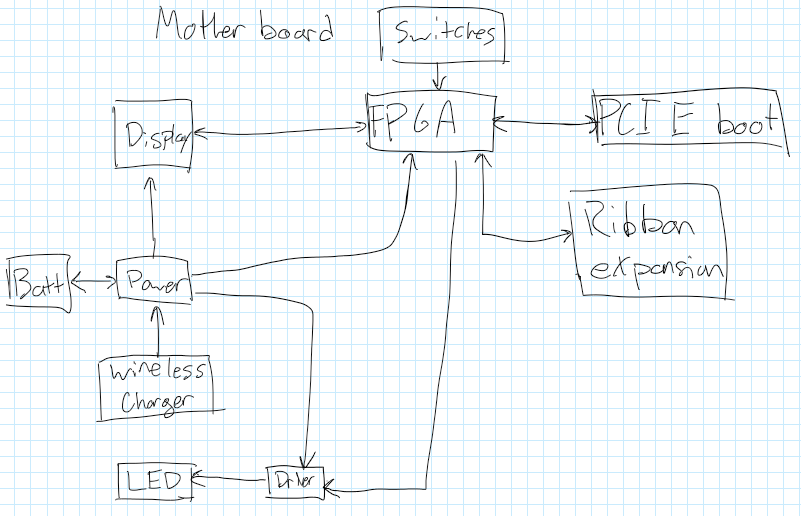 Mother board
Switches
Display
FPGA
PCI E boot
Ribbon
expansion
Batt
Power
wireless
Charger
LED
Driver